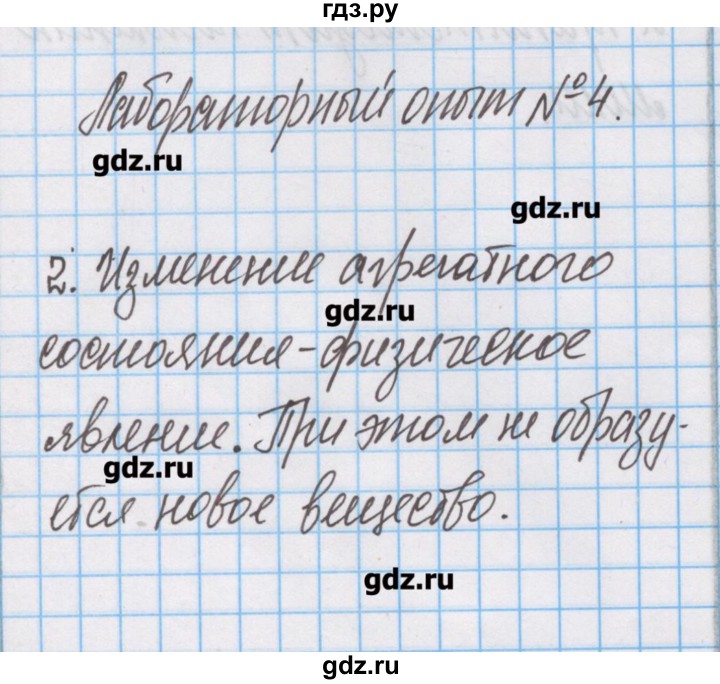 гдз.ру
Лабораторный опыт №4.
gdz.ru
gdz.ru
2. Изменение агрегатного
gdz.ru
состояния - физическое
явление. При этом не образу-
gdz.ru
ется новое вещество.
gdz.ru
gdz.ru